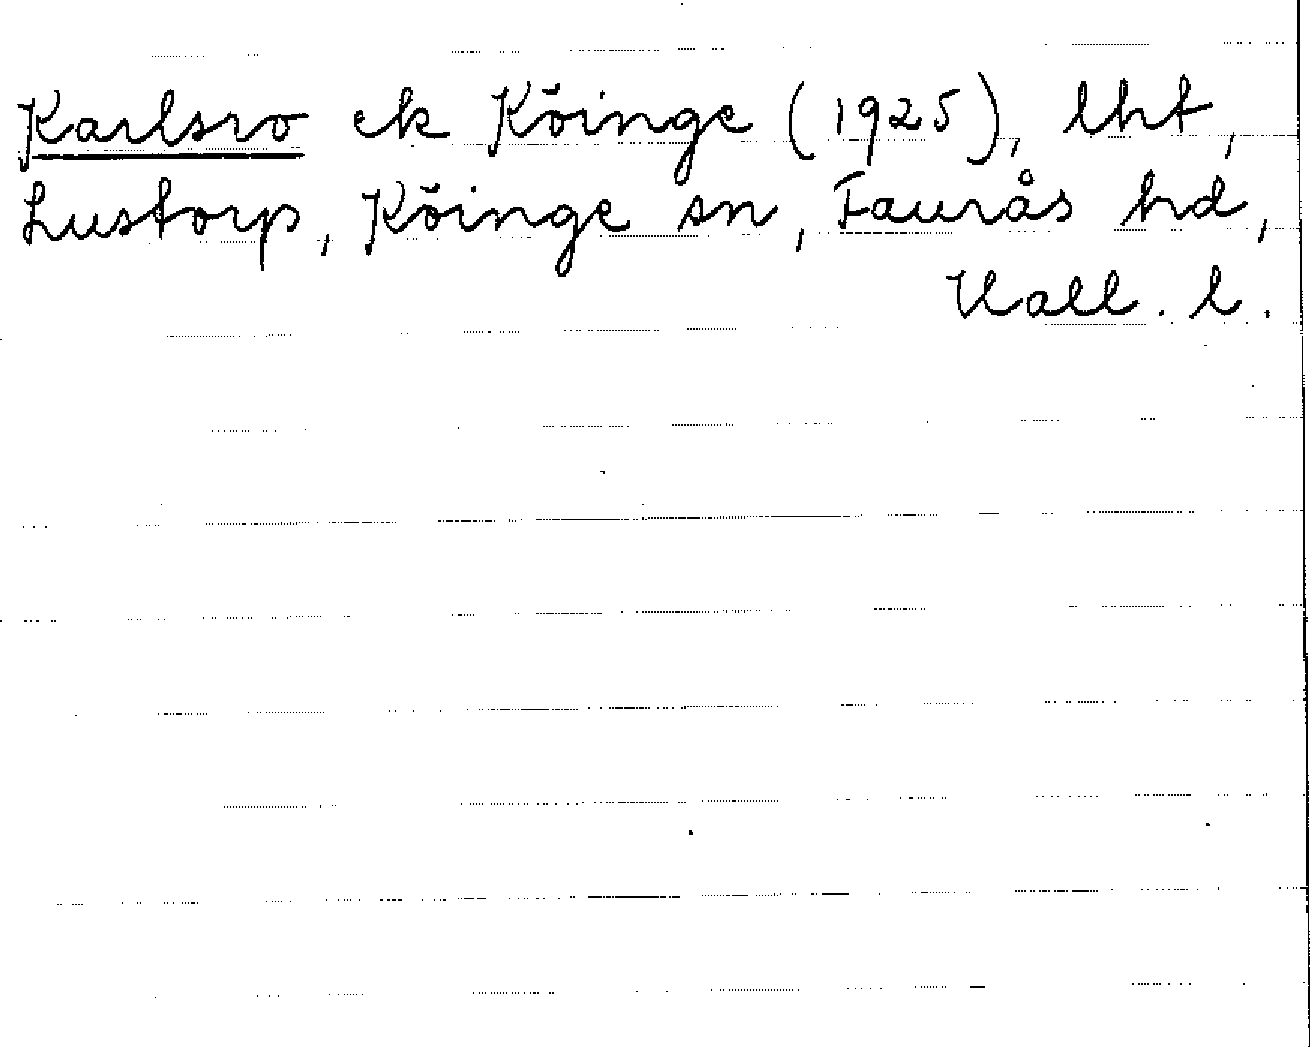 Karlsro ek Köinge (1925), lht,
Lustorp, Köinge sn, Faurås hd,
Hall. l.